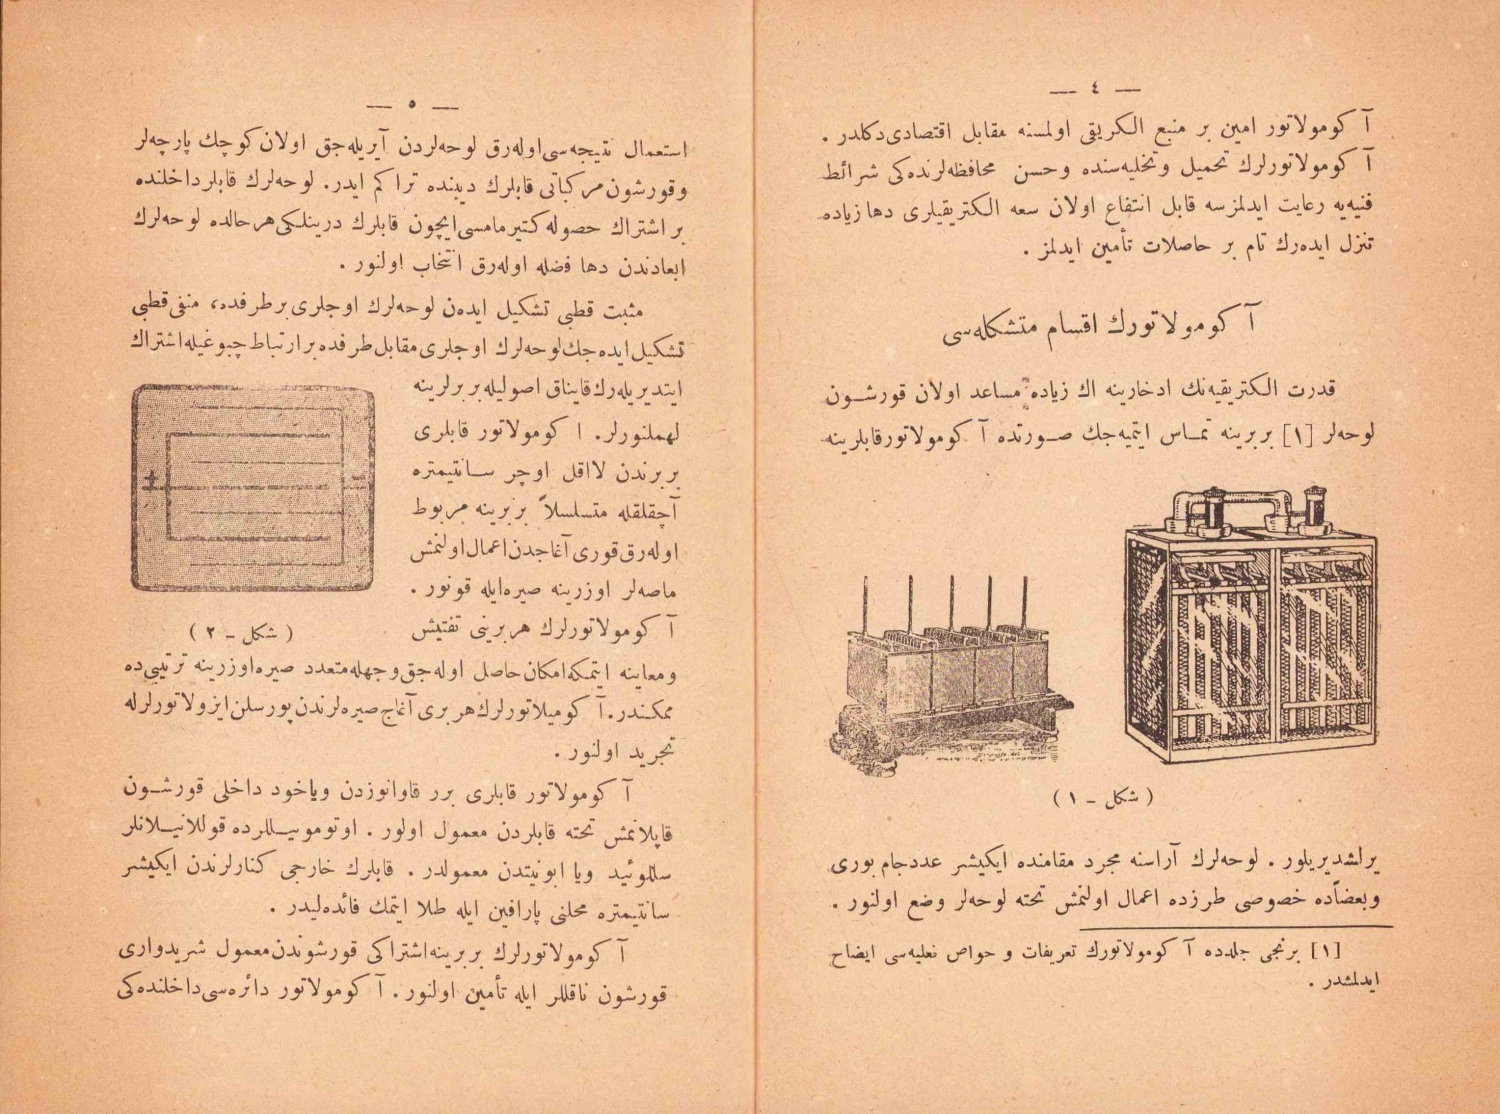 — ٤ —
آ كومولاتور امین بر منبع الكریقی اولمسنه مقابل اقتصادی دكلدر .
آ كومولاتورلرك تحمیل وتخلیه‌سنده وحسن محافظه‌لرنده‌كی شرائط
فنیه‌یه رعایت ایدلمزسه قابل انتفاع اولان سعه الكتریقیلری دها زیاده
تنزل ایده‌رك تام بر حاصلات تأمین ایدلمز .
آ كومولاتورك اقسام متشكله‌سی
قدرت الكتریقیه‌نك ادخارینه اك زیاده مساعد اولان قورشـون
لوحه‌لر [۱] بربرینه تمـاس ایتمیه‌جك صـورتده آ كومولاتورقابلرینه
( شكل ـ ۱ )
یرلشدیریلور . لوحه‌لرك آراسنه مجرد مقامنده ایكیشر عددجام بوری
وبعضاًده خصوصی طرزده اعمال اولنمش تخته لوحه‌لر وضع اولنور .
[۱] برنجی جلدده آ كومولاتورك تعریفات و حواص نعلیه‌سی ایضاح
ایدلمشدر .
— ٥ —
استعمال نتیجه‌سی‌اوله‌رق لوحه‌لردن آیریله‌جق اولان‌كوچك پارچه‌لر
وقورشون‌مركباتی قابلرك دیبنده تراكم ایدر. لوحه‌لرك قابلرداخلنده
بر اشتراك حصوله كتیرمامسی‌ایچون قابلرك درینلكی‌هرحالده لوحه‌لرك
ابعادندن دها فضله اوله‌رق انتخاب اولنور .
مثبت قطبی تشكیل ایدەن لوحه‌لرك اوجلری برطرفده، منفی‌قطبی
تشكیل‌ایده‌جك‌لوحه‌لرك اوجلری مقابل طرفده برارتباط چبوغیله‌اشتراك
ایتدیریله‌رك‌قایناق اصولیله بربرلرینه
لهملنورلر. ا كومولاتور قابلری
بربرندن لااقل اوچر سـانتیمتره
آچقلقله متسلسلاً بربرینه مربوط
اوله‌رق‌قوری آغاجدن‌اعمال‌اولنمش
ماصه‌لر اوزرینه صیره‌ایله قونور .
( شكل ـ ۲ )
آ كومولاتورلرك هربرینی تفتیش
ومعاینه ایتمكه‌امكان‌حاصل اوله‌جق‌وجهله‌متعدد صیره‌اوزرینه ترتیبی‌ده
ممكندر. آ كومیلاتورلرك‌هر بری آغاج‌صیره‌لرندن‌پورسلن‌ایزولاتورلرله
تجرید اولنور .
آ كومولاتور قابلری برر قاوانوزدن ویاخود داخلی قورشـون
قاپلانمش تخته قابلردن معمول اولور . اوتوموبیـللرده قوللانیـلانلر
سللوئید ویا ابونیتدن معمولدر . قابلرك خارجی كنارلرندن ایكیشر
سانتیمتره محلنی پارافین ایله طلا ایتمك فائده‌لیدر .
آ كومولاتورلرك بربرینه‌اشتراكی قورشوندن‌معمول شریدواری
قورشون ناقللر ایله تأمین اولنور . آ كومولاتور دائره‌سی‌داخلنده‌كی